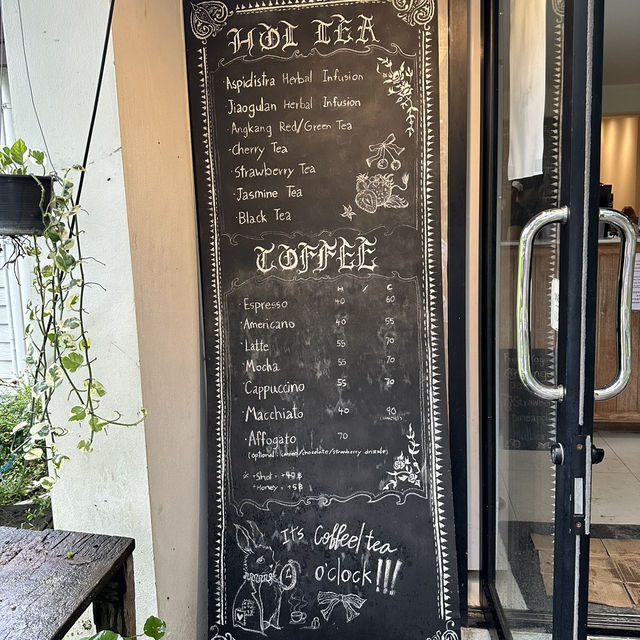 HOT TEA
Aspidistra Herbal Infusion
Jiaogulan Herbal Infusion
· Angkang Red/Green Tea
· Cherry Tea
· Strawberry Tea
· Jasmine Tea
· Black Tea
COFFEE
H / C
· Espresso 40 60
· Americano 40 55
· Latte 55 70
· Mocha 55 70
· Cappuccino 55 70
· Macchiato 40 90
· Affogato 70
(optional: /chocolate/strawberry drizzle)
※ +Shot = +40 ฿
+Honey = +5฿
It's Coffee/tea
o'clock!!!